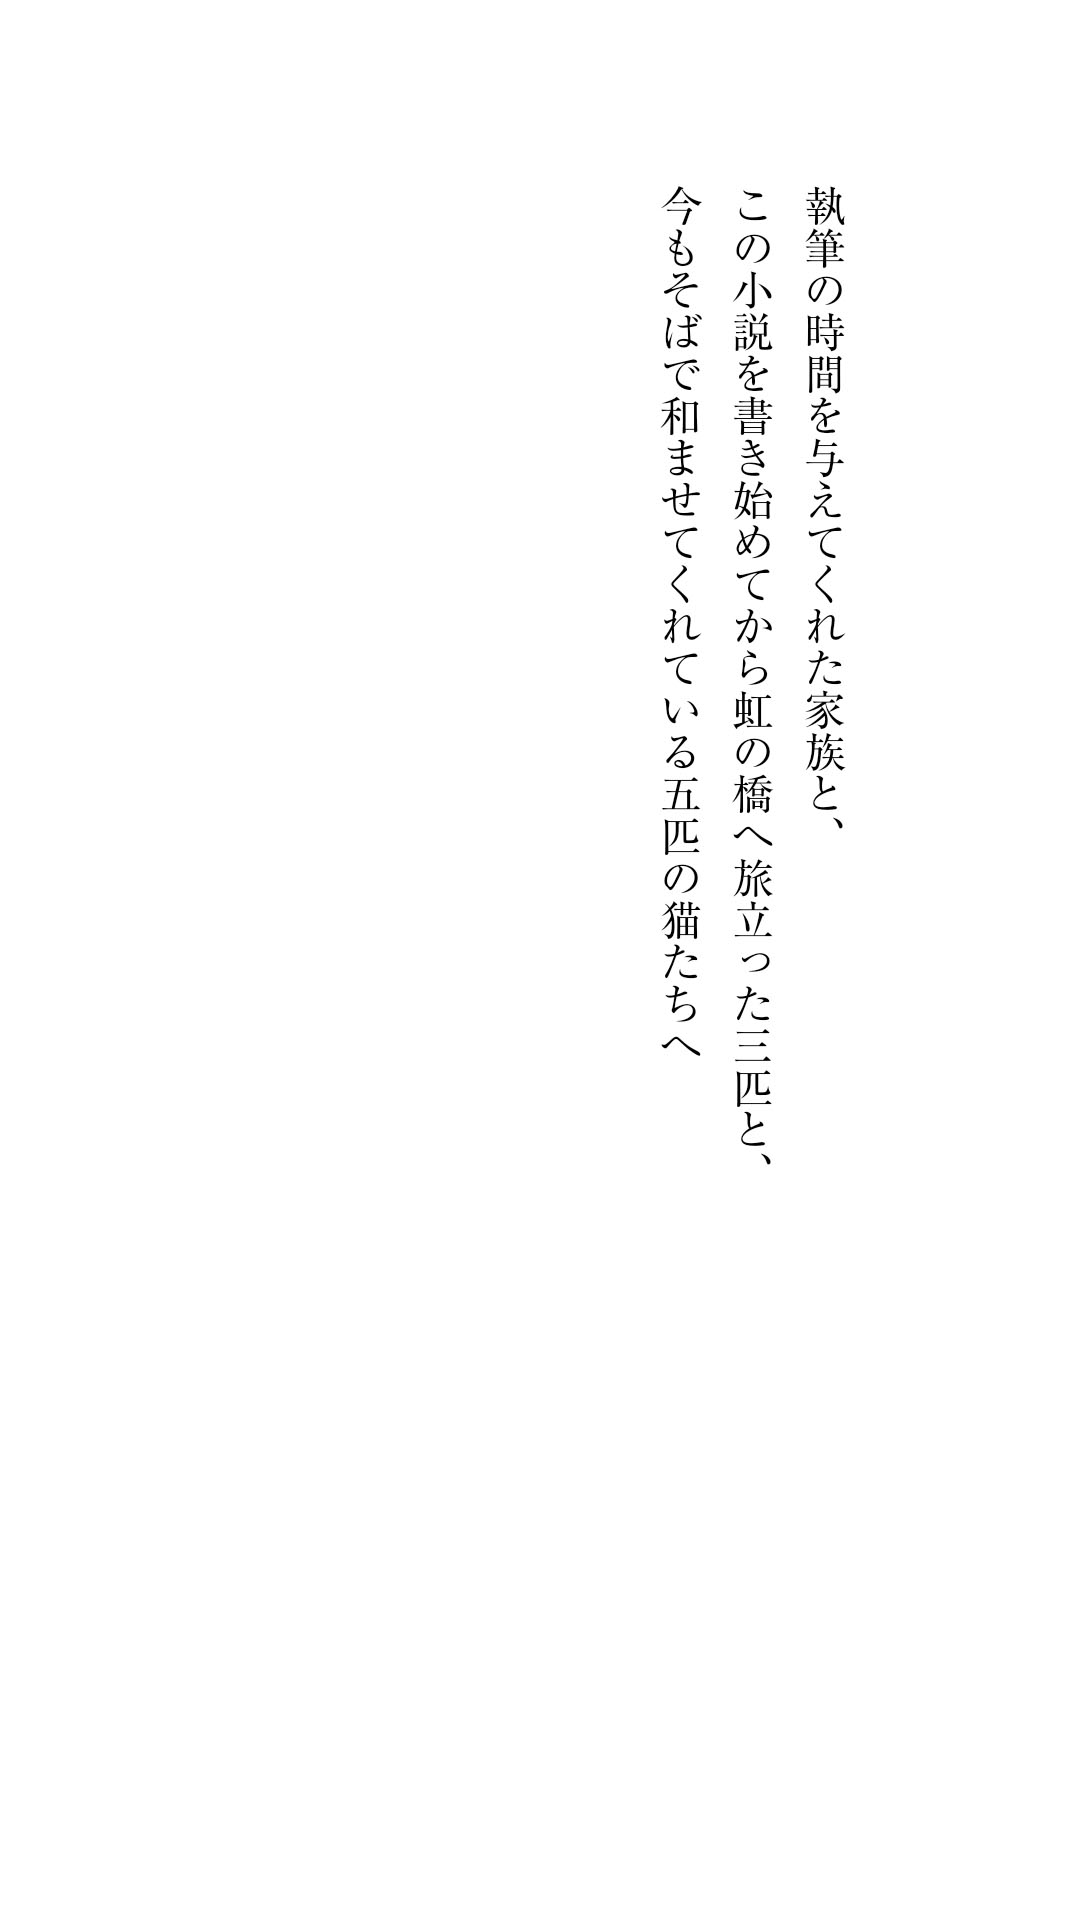 執筆の時間を与えてくれた家族と、
この小説を書き始めてから虹の橋へ旅立った三匹と、
今もそばで和ませてくれている五匹の猫たちへ